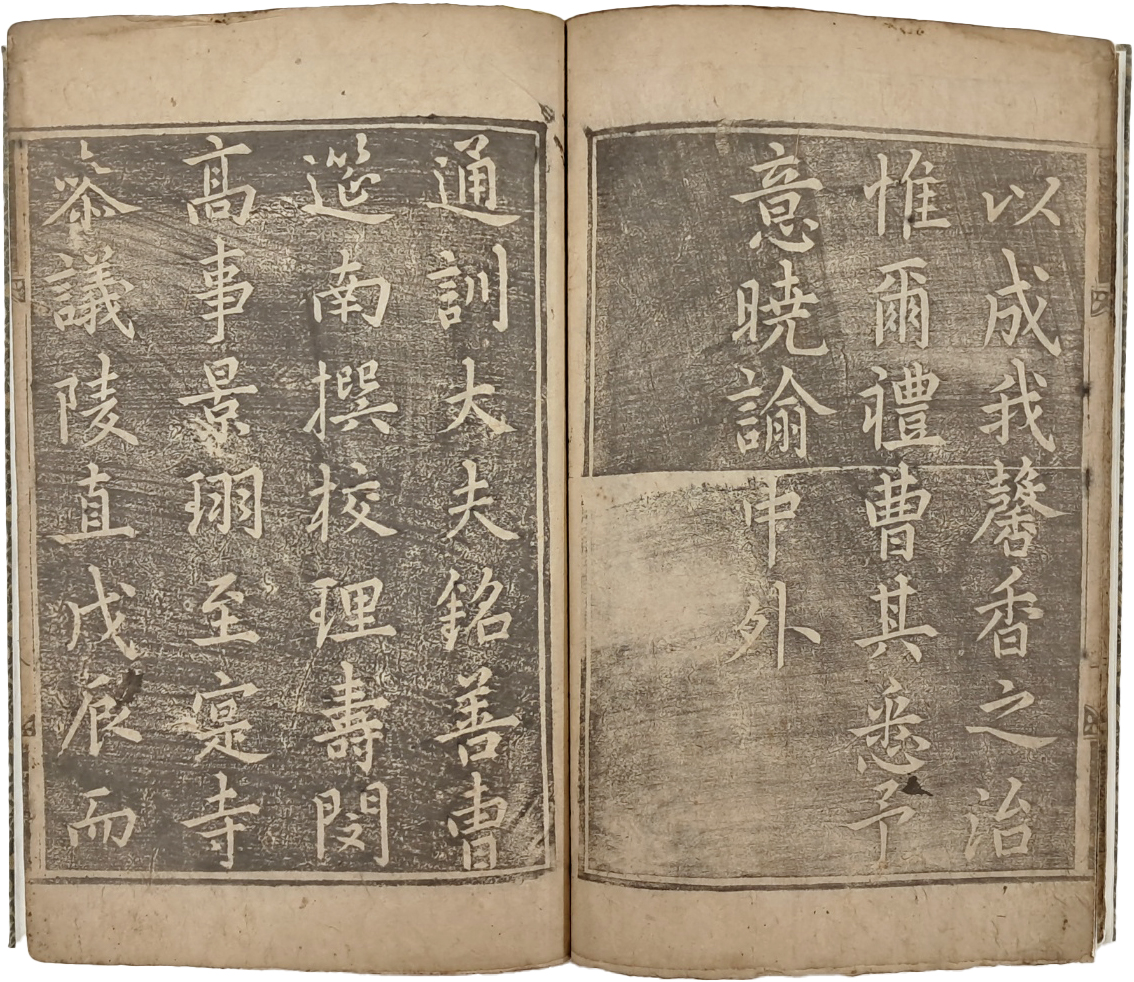 以成我馨香之治
惟爾禮曹其悉予
意暁諭中外
通訓大夫銘善曹
筵南撰校理壽閔
髙事景珝至寔寺
叅議陵直戊辰而